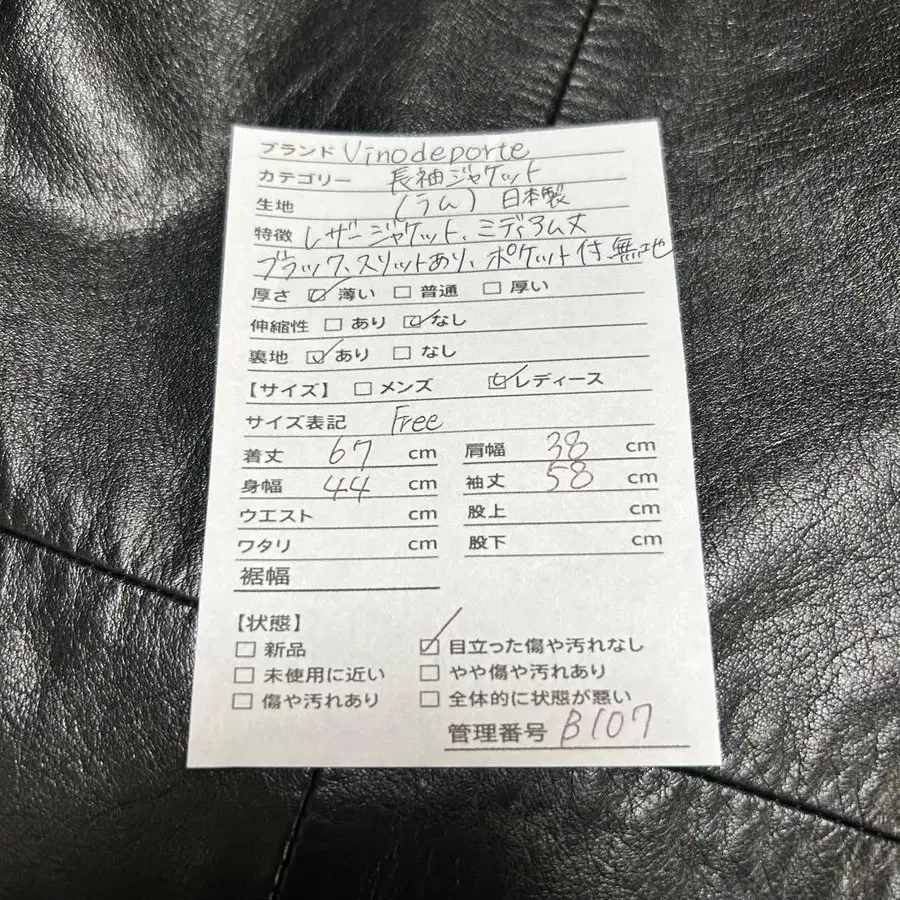 ブランド Vinodeporte
カテゴリー 長袖ジャケット
生地 (ラム) 日本製
特徴 レザージャケット、ミディアム丈
ブラック、スリットあり、ポケット付 無地
厚さ ☑ 薄い ☐ 普通 ☐ 厚い
伸縮性 ☐ あり ☑ なし
裏地 ☑ あり ☐ なし
【サイズ】 ☐ メンズ ☑ レディース
サイズ表記 Free
着丈 67 cm 肩幅 38 cm
身幅 44 cm 袖丈 58 cm
ウエスト cm 股上 cm
ワタリ cm 股下 cm
裾幅
【状態】
☐ 新品 ☑ 目立った傷や汚れなし
☐ 未使用に近い ☐ やや傷や汚れあり
☐ 傷や汚れあり ☐ 全体的に状態が悪い
管理番号 B107